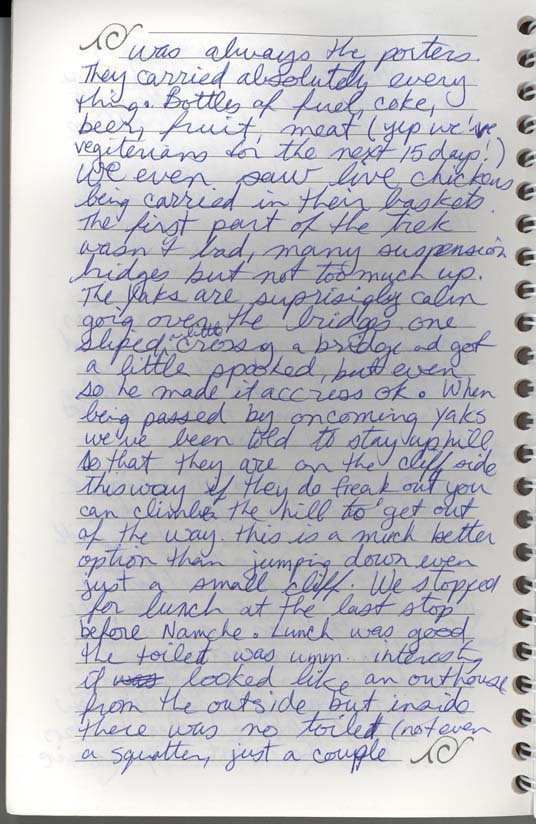 was always the porters.
They carried absolutely every
thing. Bottles of fuel, coke,
beer, fruit, meat (yip we've
vegiterians for the next 15 days!)
We even saw live chickens
being carried in their baskets.
The first part of the trek
wasn't bad, many suspension
bridges but not too much up.
The Yaks are suprisigly calm
goig over the bridges. one
sliped a little cressig a bridge ad got
a little spooked, but even
so he made it accress ok. When
being passed by oncoming yaks
we've been told to stay uphill
so that they are on the cliff side
this way if they do freak out you
can climb the hill to get out
of the way. this is a much better
option than jumping down even
just a small cliff. We stopped
for lunch at the last stop
before Namche. Lunch was good,
the toilet was umm. interestig
it was looked like an outhouse
from the outside but inside
there was no toilet (not even
a squatter, just a couple